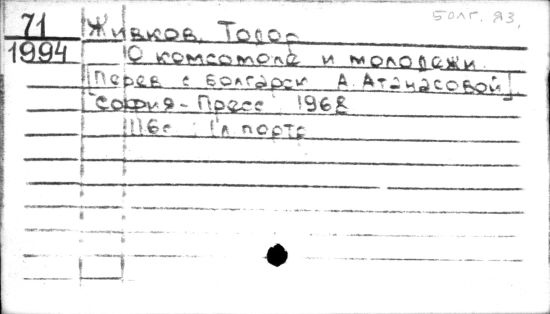 БОЛГ. ЯЗ.
71
1994
Живков, Тодор
О комсомоле и молодежи
[Перев с болгарск А. Атанасовой]
София-Пресс 1968
116с 1л портр